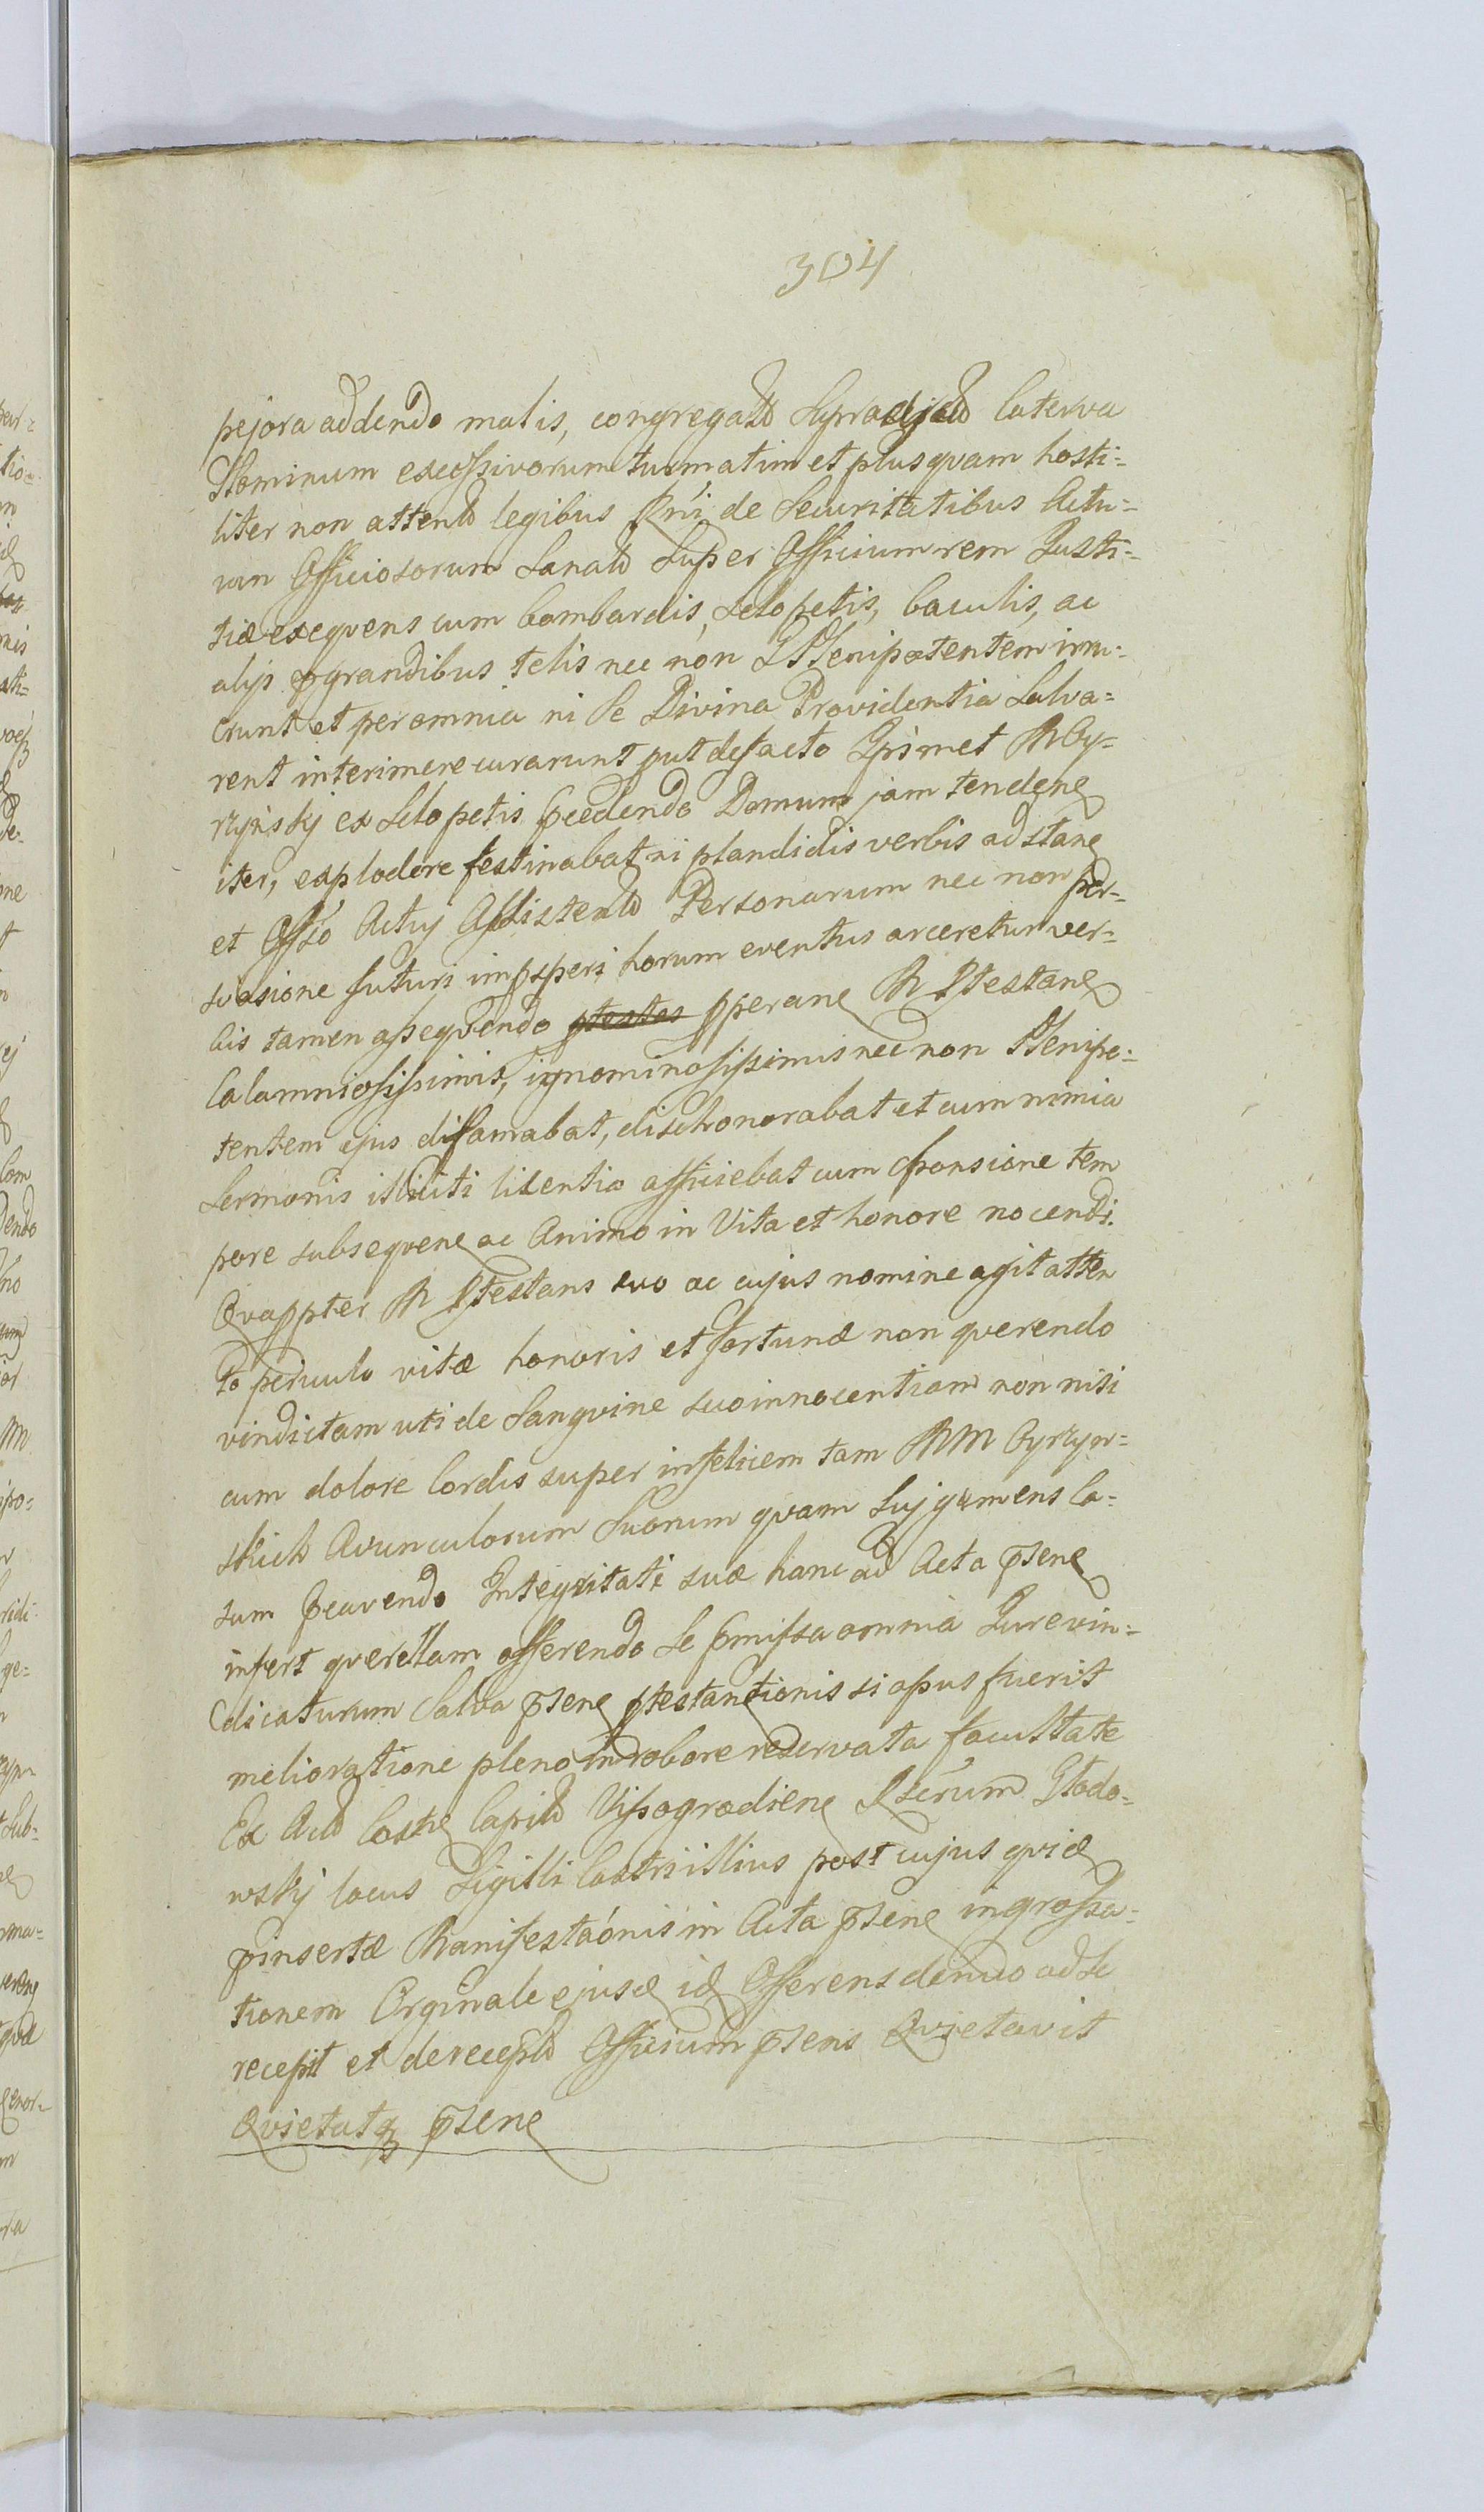 304
pejora addendo malis, congregata Supradicta Caterva
Hominum excessivorum turmatim et plusquam hosti=
liter non attentis legibus Rni de Securitatibus Actu=
um Officiosorum Sancitis Super Officium rem Justi=
tiæ exeqvens cum bombardis, Sclopetis, baculis, ac
alijs pgrandibus telis nec non Plenipotentem irru=
erunt et per omnia ni Se Divina Providentia Salva=
rent interimere curarunt put defacto Ipsimet M Cy=
rzyński ex Sclopetis pcedendo Domum jam tenden
iter, explodere festinabat ni plandidis verbis adstan
et Offo Actuj Assistentis Personarum nec non per=
svasione futuri impsperi horum eventus arceretur ver=
bis tamen assequendo ptestes pperan M Ptestan
Calamniosissimis, ignominosissimis nec non Plenipo=
tentem ejus difamabat, dischonorabat et cum nimia
Sermonis illiciti licentia afficiebat cum sponsione tem
pore subseqven ac Animo in Vita et honore nocendi.
Qvappter M Ptestans suo ac cujus nomine agit atten
to periculo vitæ honoris et fortunæ non querendo
vindictam uti de Sangvine suo innocentiam non nisi
cum dolore Cordis super infelicem tam MM Cyrzyn=
skich Avunculorum Suorum qvam Suj gemens Ca=
sum pcavendo Integritati suæ hanc ad Acta psen
infert querellam offerendo Se pmissa omnia Jure vin=
dicaturum Salva psen ptestantionis si opus fuerit
melioratione pleno in robore reservata facultate
Ex Actis Castr Capitl Vissogradien Rserum Głodo=
wskj locus Sigilli Castri illius post cujus qvid
pinsertæ Manifestaonis in Acta psen ingrossa=
tionem Orginale ejusd id Offerens denuo ad Se
recepit et de recepto Officium psens Qvietavit
Qvietatq psen